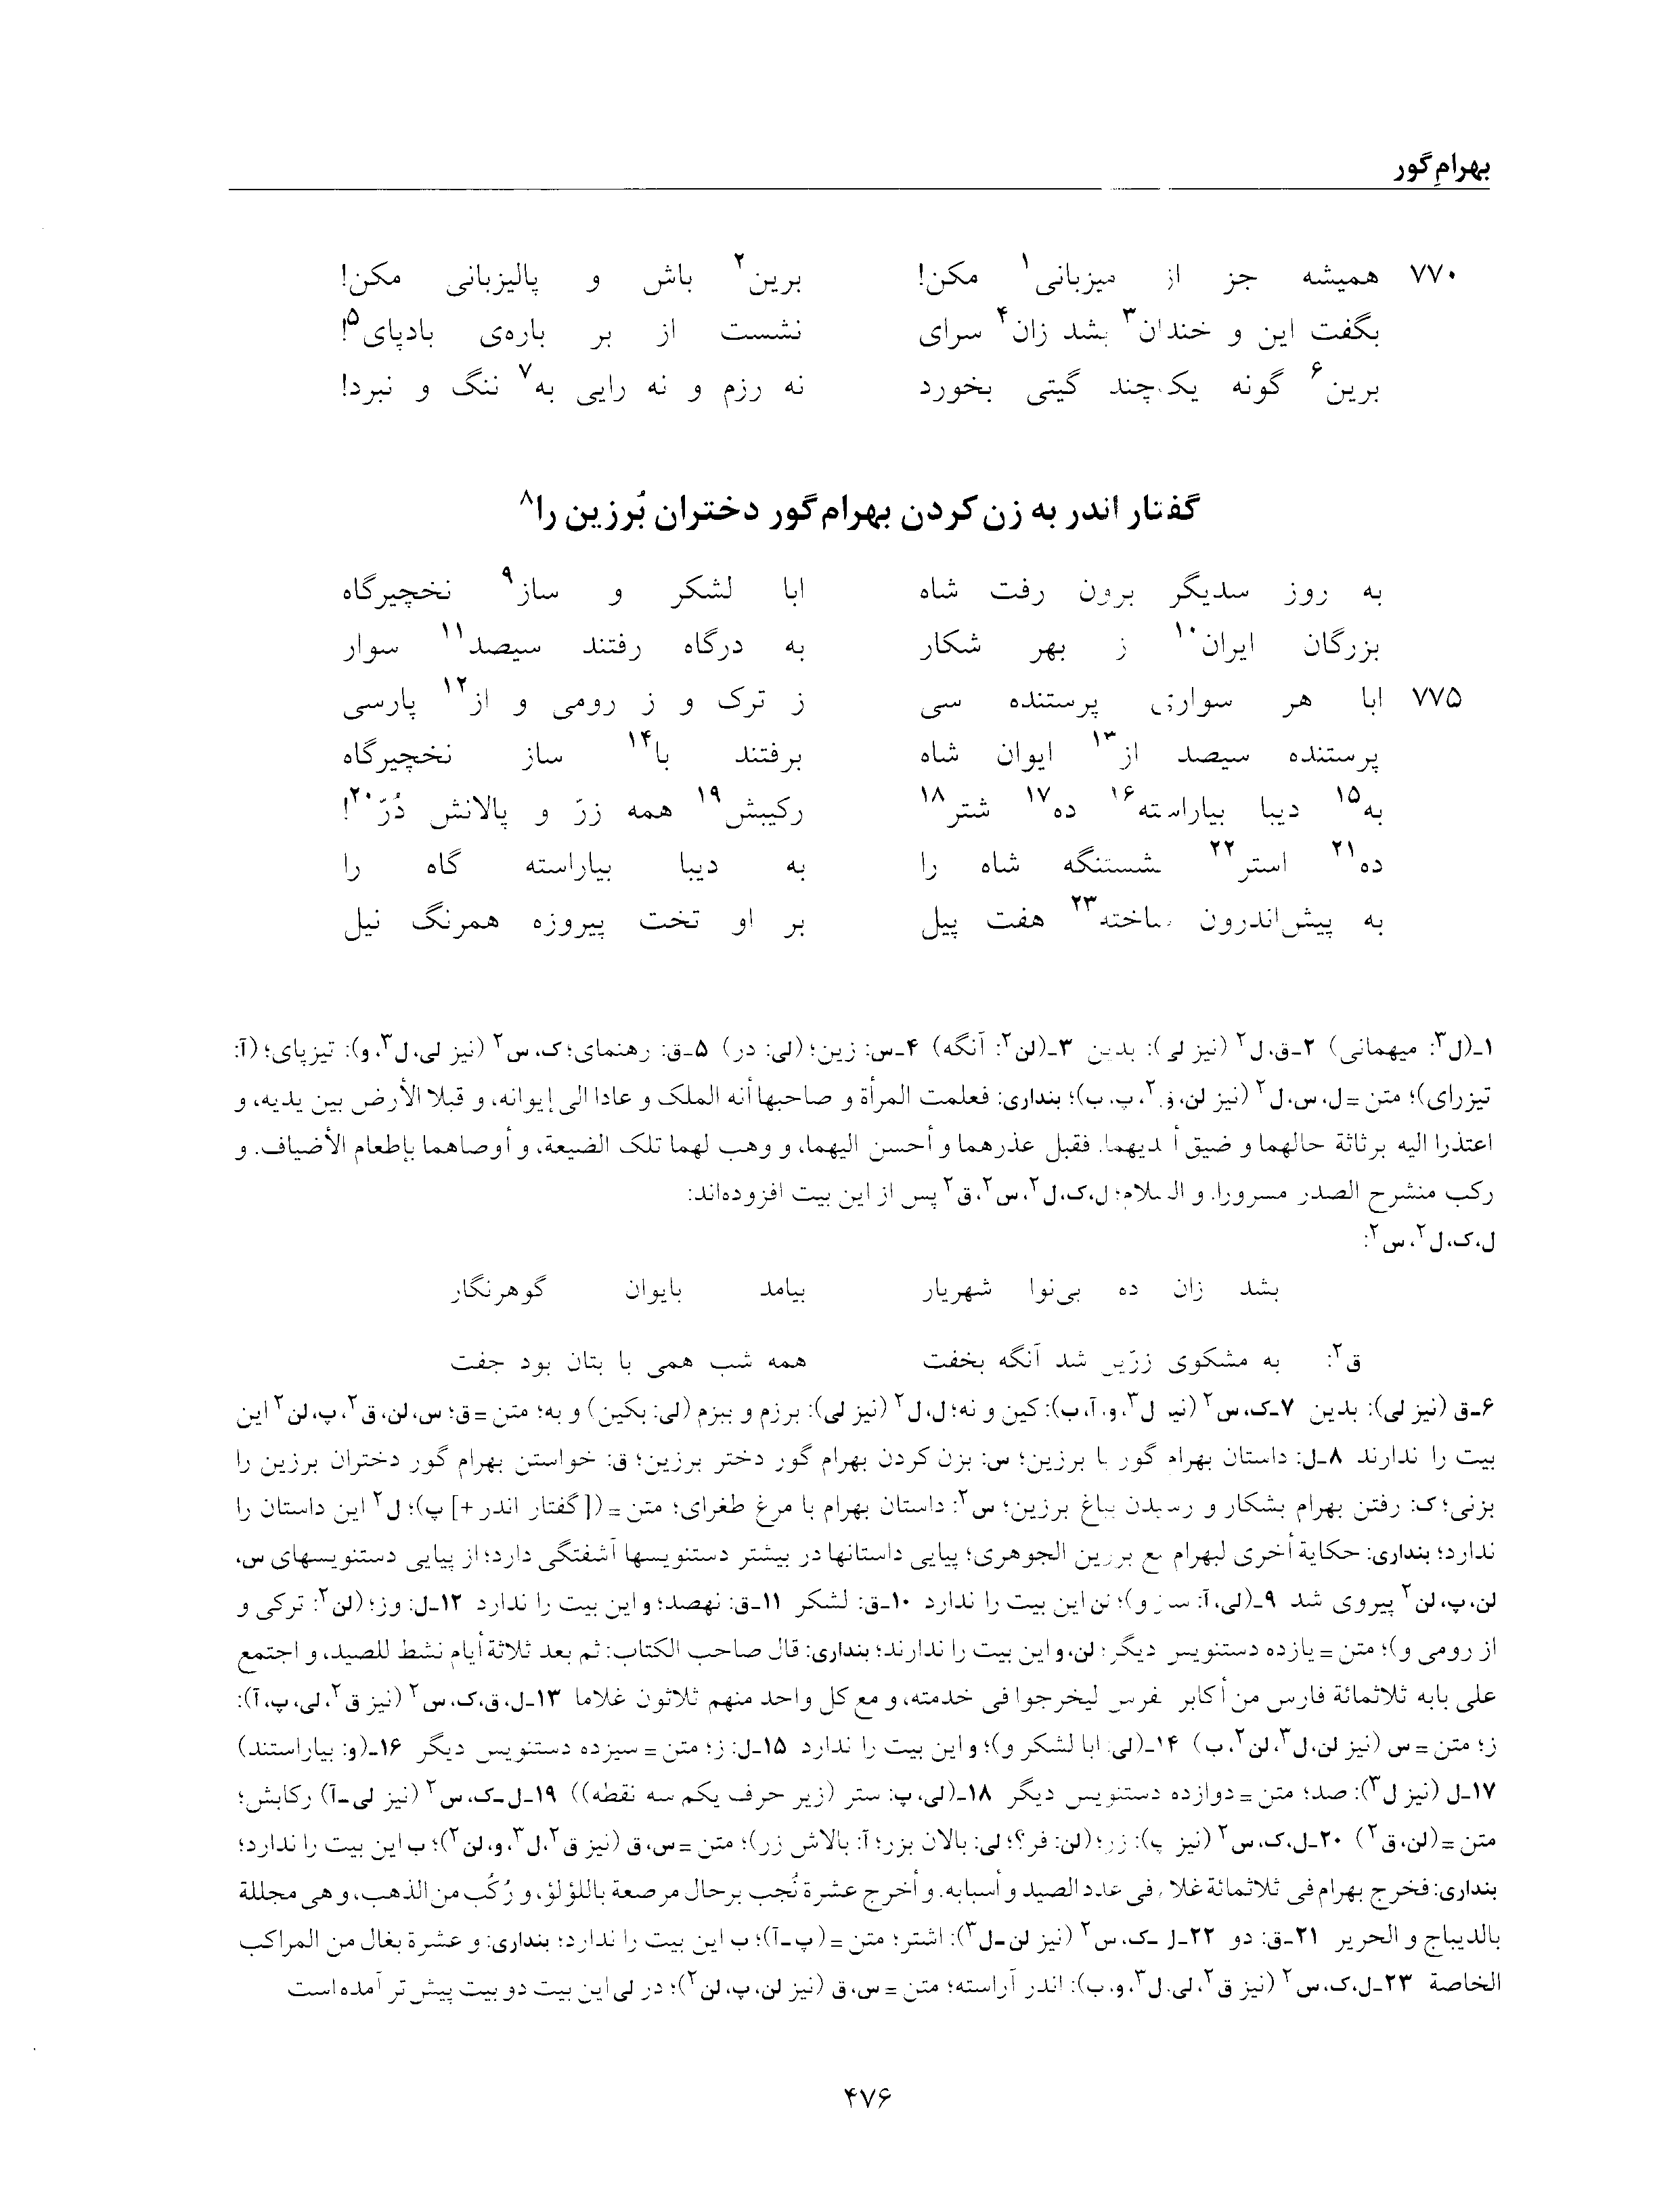 بهرامِ گور
۷۷۰ همیشه جز از میزبانی۱ مکن! برین۲ باش و پالیزبانی مکن!
بگفت این و خندان۳ بشد زان۴ سرای نشست از بر باره‌ی بادپای۵!
برین۶ گونه یک‌چند گیتی بخورد نه رزم و نه رایی به۷ ننگ و نبرد!
گفتار اندر به زن کردن بهرام گور دختران بُرزین را۸
به روز سدیگر برون رفت شاه ابا لشکر و ساز۹ نخچیرگاه
بزرگان ایران۱۰ ز بهر شکار به درگاه رفتند سیصد۱۱ سوار
۷۷۵ ابا هر سواری پرستنده سی ز ترک و ز رومی و از۱۲ پارسی
پرستنده سیصد از۱۳ ایوان شاه برفتند با۱۴ ساز نخچیرگاه
به۱۵ دیبا بیاراسته۱۶ ده۱۷ شتر۱۸ رکیبش۱۹ همه زرّ و پالانش دُرّ۲۰!
ده۲۱ استر۲۲ نشستنگه شاه را به دیبا بیاراسته گاه را
به پیش‌اندرون ساخته۲۳ هفت پیل بر او تخت پیروزه همرنگ نیل
۱ـ(ل۳: میهمانی) ۲ـق،ل۲ (نیز لی): بدین ۳ـ(لن۲: آنگه) ۴ـس: زین؛ (لی: در) ۵ـق: رهنمای؛ ک،س۲ (نیز لی،ل۳،و): تیزپای؛ (آ:
تیزرای)؛ متن = ل،س،ل۲ (نیز لن،ق۲،پ،ب)؛ بنداری: فعلمت المرأة و صاحبها أنه الملک و عادا الی إیوانه، و قبلا الأرض بین یدیه، و
اعتذرا الیه برثاثة حالهما و ضیق أیدیهما. فقبل عذرهما و أحسن الیهما، و وهب لهما تلک الضیعة، و أوصاهما بإطعام الأضیاف. و
رکب منشرح الصدر مسرورا. و السلام؛ ل،ک،ل۲،س۲،ق۲ پس از این بیت افزوده‌اند:
ل،ک،ل۲،س۲:
بشد زان ده بی‌نوا شهریار بیامد بایوان گوهرنگار
ق۲: به مشکوی زرّین شد آنگه بخفت همه شب همی با بتان بود جفت
۶ـق (نیز لی): بدین ۷ـک،س۲ (نیز ل۳،و،آ،ب): کین و نه؛ ل،ل۲ (نیز لی): برزم و ببزم (لی: بکین) و به؛ متن = ق؛ س،لن،ق۲،پ،لن۲ این
بیت را ندارند ۸ـل: داستان بهرام گور با برزین؛ س: بزن کردن بهرام گور دختر برزین؛ ق: خواستن بهرام گور دختران برزین را
بزنی؛ ک: رفتن بهرام بشکار و رسیدن بباغ برزین؛ س۲: داستان بهرام با مرغ طغرای؛ متن = ([گفتار اندر +] پ)؛ ل۲ این داستان را
ندارد؛ بنداری: حکایة أخری لبهرام مع برزین الجوهری؛ پیاپی داستانها در بیشتر دستنویسها آشفتگی دارد؛ از پیاپی دستنویسهای س،
لن،پ،لن۲ پیروی شد ۹ـ(لی،آ: ساز و)؛ لن این بیت را ندارد ۱۰ـق: لشکر ۱۱ـق: نهصد؛ و این بیت را ندارد ۱۲ـل: وز؛ (لن۲: ترکی و
از رومی و)؛ متن = یازده دستنویس دیگر؛ لن،و این بیت را ندارند؛ بنداری: قال صاحب الکتاب: ثم بعد ثلاثة أیام نشط للصید، و اجتمع
علی بابه ثلاثمائة فارس من أکابر الفرس لیخرجوا فی خدمته، و مع کل واحد منهم ثلاثون غلاما ۱۳ـل،ق،ک،س۲ (نیز ق۲،لی،پ،آ):
ز؛ متن = س (نیز لن،ل۳،لن۲،ب) ۱۴ـ(لی: ابا لشکر و)؛ و این بیت را ندارد ۱۵ـل: ز؛ متن = سیزده دستنویس دیگر ۱۶ـ(و: بیاراستند)
۱۷ـل (نیز ل۳): صد؛ متن = دوازده دستنویس دیگر ۱۸ـ(لی،پ: ستر (زیر حرف یکم سه نقطه)) ۱۹ـل‌ـک،س۲ (نیز لی‌ـآ) رکابش؛
متن = (لن،ق۲) ۲۰ـل،ک،س۲ (نیز پ): زر؛ (لن: فر؟؛ لی: بالان بزر؛ آ: بالاش زر)؛ متن = س،ق (نیز ق۲،ل۳،و،لن۲)؛ ب این بیت را ندارد؛
بنداری: فخرج بهرام فی ثلاثمائة غلام فی عدد الصید و أسبابه. و أخرج عشرة نُجب برحال مرصعة باللؤلؤ، و رُکُب من الذهب، و هی مجللة
بالدیباج و الحریر ۲۱ـق: دو ۲۲ـل‌ـک،س۲ (نیز لن‌ـل۳): اشتر؛ متن = (پ‌ـآ)؛ ب این بیت را ندارد؛ بنداری: و عشرة بغال من المراکب
الخاصة ۲۳ـل،ک،س۲ (نیز ق۲،لی،ل۳،و،ب): اندر آراسته؛ متن = س،ق (نیز لن،پ،لن۲)؛ در لی این بیت دو بیت پیش‌تر آمده است
۴۷۶